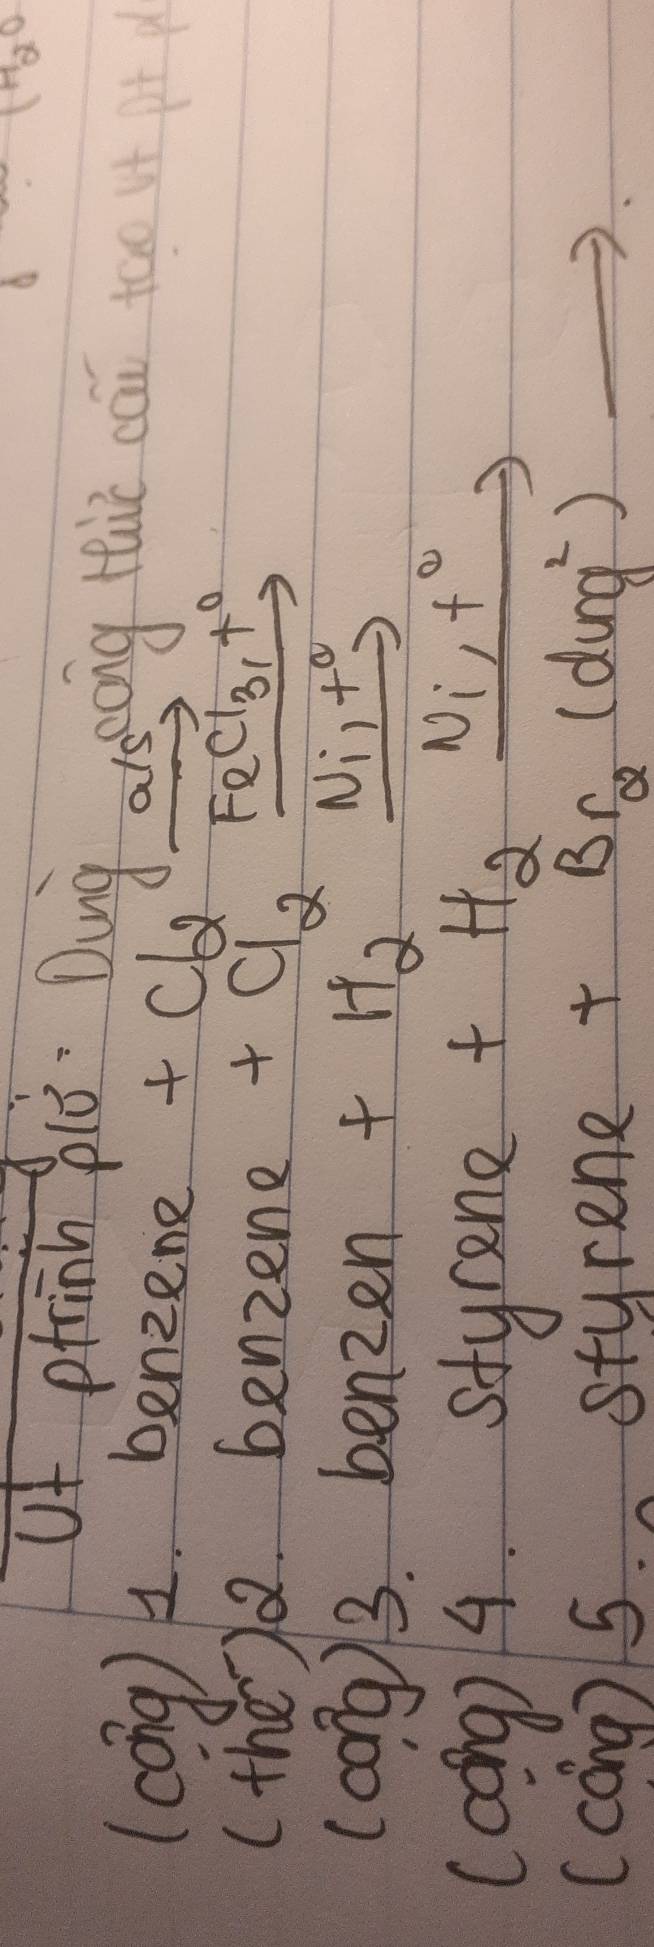 (H₂O
Vt ptrình pứ: Dùng công thức cấu tạo vt pt
(cộng) 1. benzene + Cl₂ a/s →
(thế) 2. benzene + Cl₂ FeCl₃, t⁰ →
(cộng) 3. benzen + H₂ Ni, t⁰ →
(cộng) 4. styrene + H₂ Ni, t⁰ →
(cộng) 5. styrene + Br₂ (dung²) → .